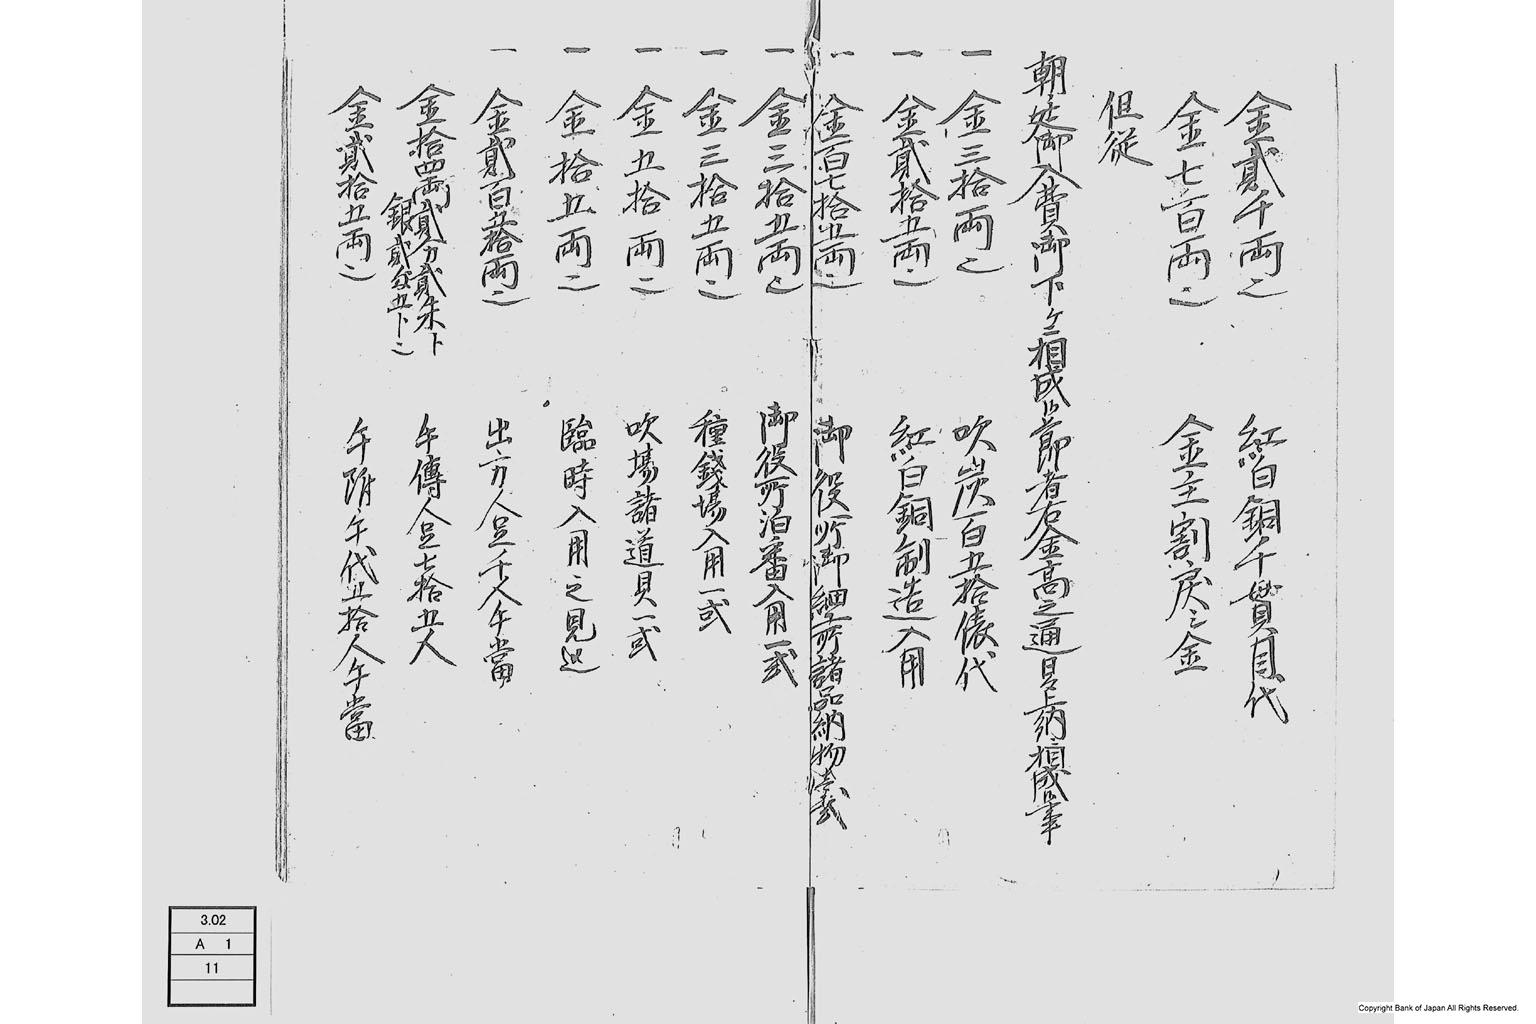 金貳千両也 紅白銅千貫目代
金七百両也 金主割戻し金
但従
朝廷御入費御下ケ相成候節者右金高之通上納相成候事
一 金三拾両也 吹炭百五拾俵代
一 金貳拾五両也 紅白銅制造入用
一 金百七拾五両也 御役所御細工所諸品納物
一 金三拾五両也 御役所泊番入用一式
一 金三拾五両也 種錢場入用一式
一 金五拾両也 吹場諸道具一式
一 金拾五両也 臨時入用之見込
一 金貳百五拾両也 出方人足千人午當
金拾四両貳分貳朱ト 午傳人足七拾五人
銀貳匁五卜也
金貳拾五両也 午代五拾人午當
3.02
A 1
11
Copyright Bank of Japan All Rights Reserved.